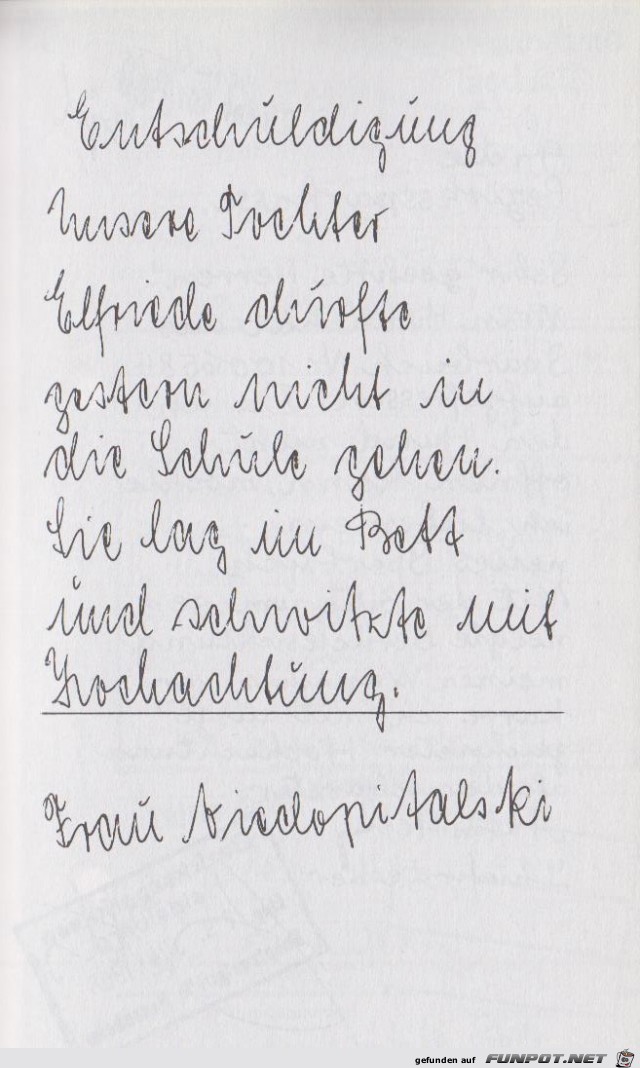 Entschuldigung
Unsere Tochter
Elfriede durfte
gestern nicht in
die Schule gehen.
Sie lag im Bett
und schwitzte mit
Hochachtung.
Frau
gefunden auf FUNPOT.NET